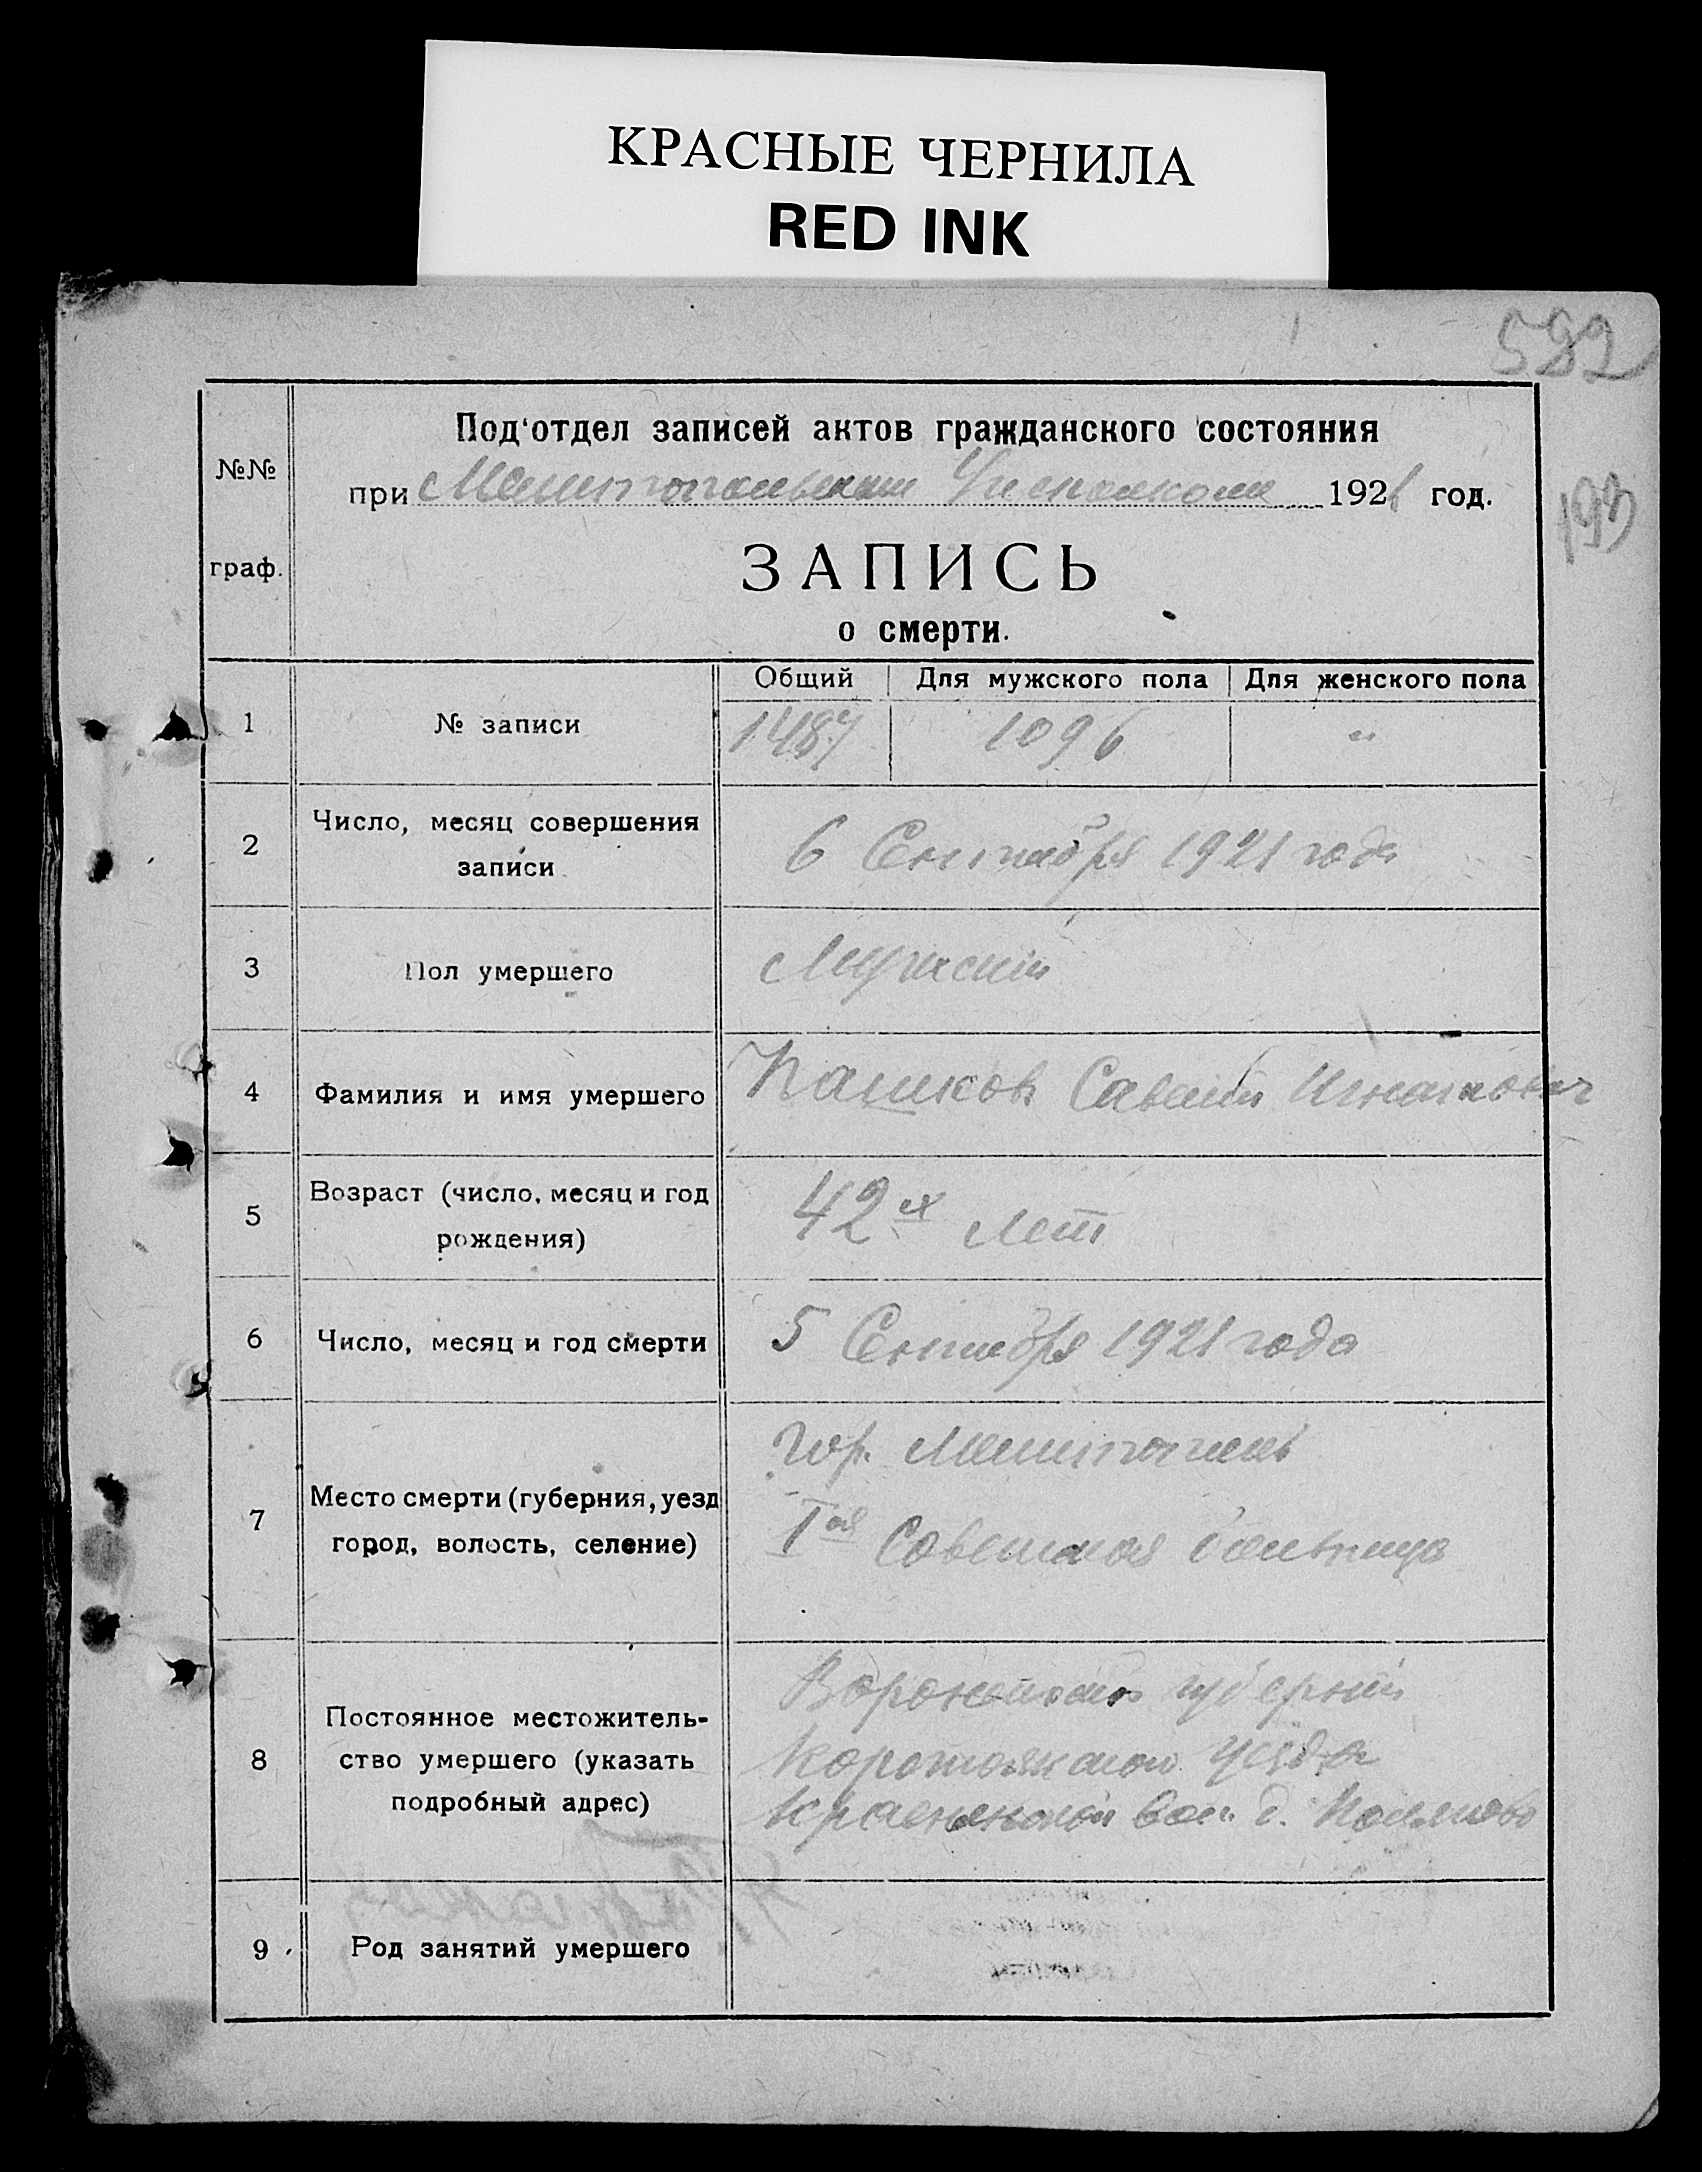 КРАСНЫЕ ЧЕРНИЛА
RED INK
592
Под'отдел записей актов гражданского состояния
№№
при Мелитопольском Исполкоме 1921 год.
193
граф.
ЗАПИСЬ
о смерти.
Общий Для мужского пола Для женского пола
1 № записи 1487 1096 "
2 Число, месяц совершения
записи
6 Сентября 1921 года
3 Пол умершего Мужской
4 Фамилия и имя умершего Пашков Савелий Игнатович
5 Возраст (число, месяц и год
рождения)
42х Лет
6 Число, месяц и год смерти 5 Сентября 1921 года
7 Место смерти (губерния, уезд
город, волость, селение)
гор. Мелитополь
Iая Советская больница
8 Постоянное местожитель-
ство умершего (указать
подробный адрес)
губернии
Коротоякского уезда
вол. д.
9 Род занятий умершего